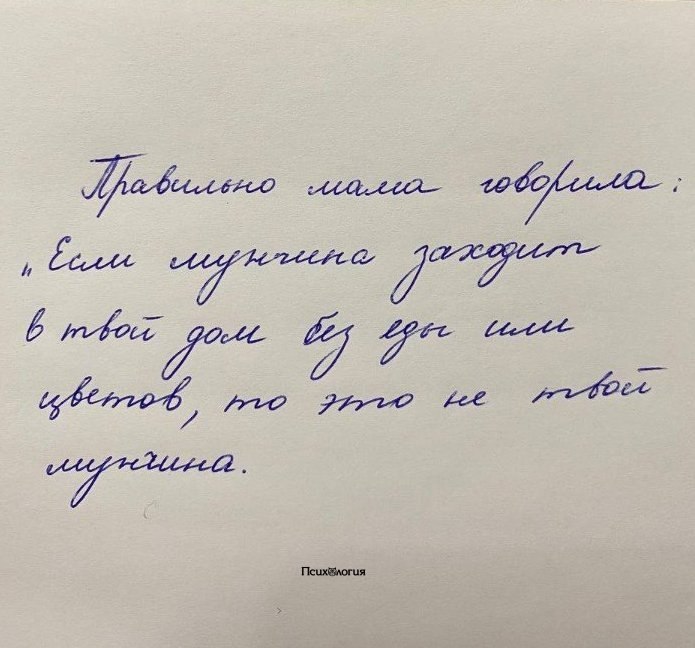 Правильно мама говорила:
„Если мужчина заходит
в твой дом без еды или
цветов, то это не твой
мужчина.
Психология